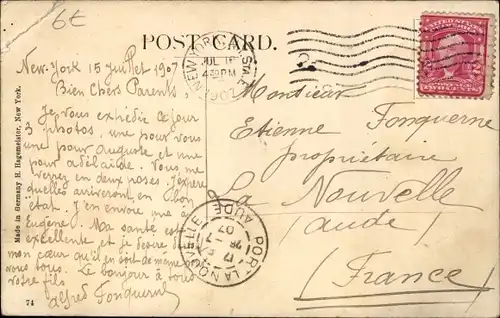 6€
POST CARD.
NEW YORK, STA.
JUL 16
4 30 PM
1907
UNITED STATES
New-York 15 juillet 1907
Bien Chers Parents
Je vous expédie ce jour
3 photos, une pour vous
une pour Auguste et une
pour Adelaïde. Vous me
verrez en deux poses. J'espère
quelles arriveront en bon
état. J'en envoie une à
Eugène. Ma santé est
excellente et je désire de
mon cœur qu'il en soit de même de
vous tous. Le bonjour à tous
votre fils
Alfred Fonquerne
Monsieur
Etienne Fonquerne
propriétaire
La Nouvelle
(aude)
(France)
PORT LA NOUVELLE
AUDE
Made in Germany H. Hagemeister, New York.
74